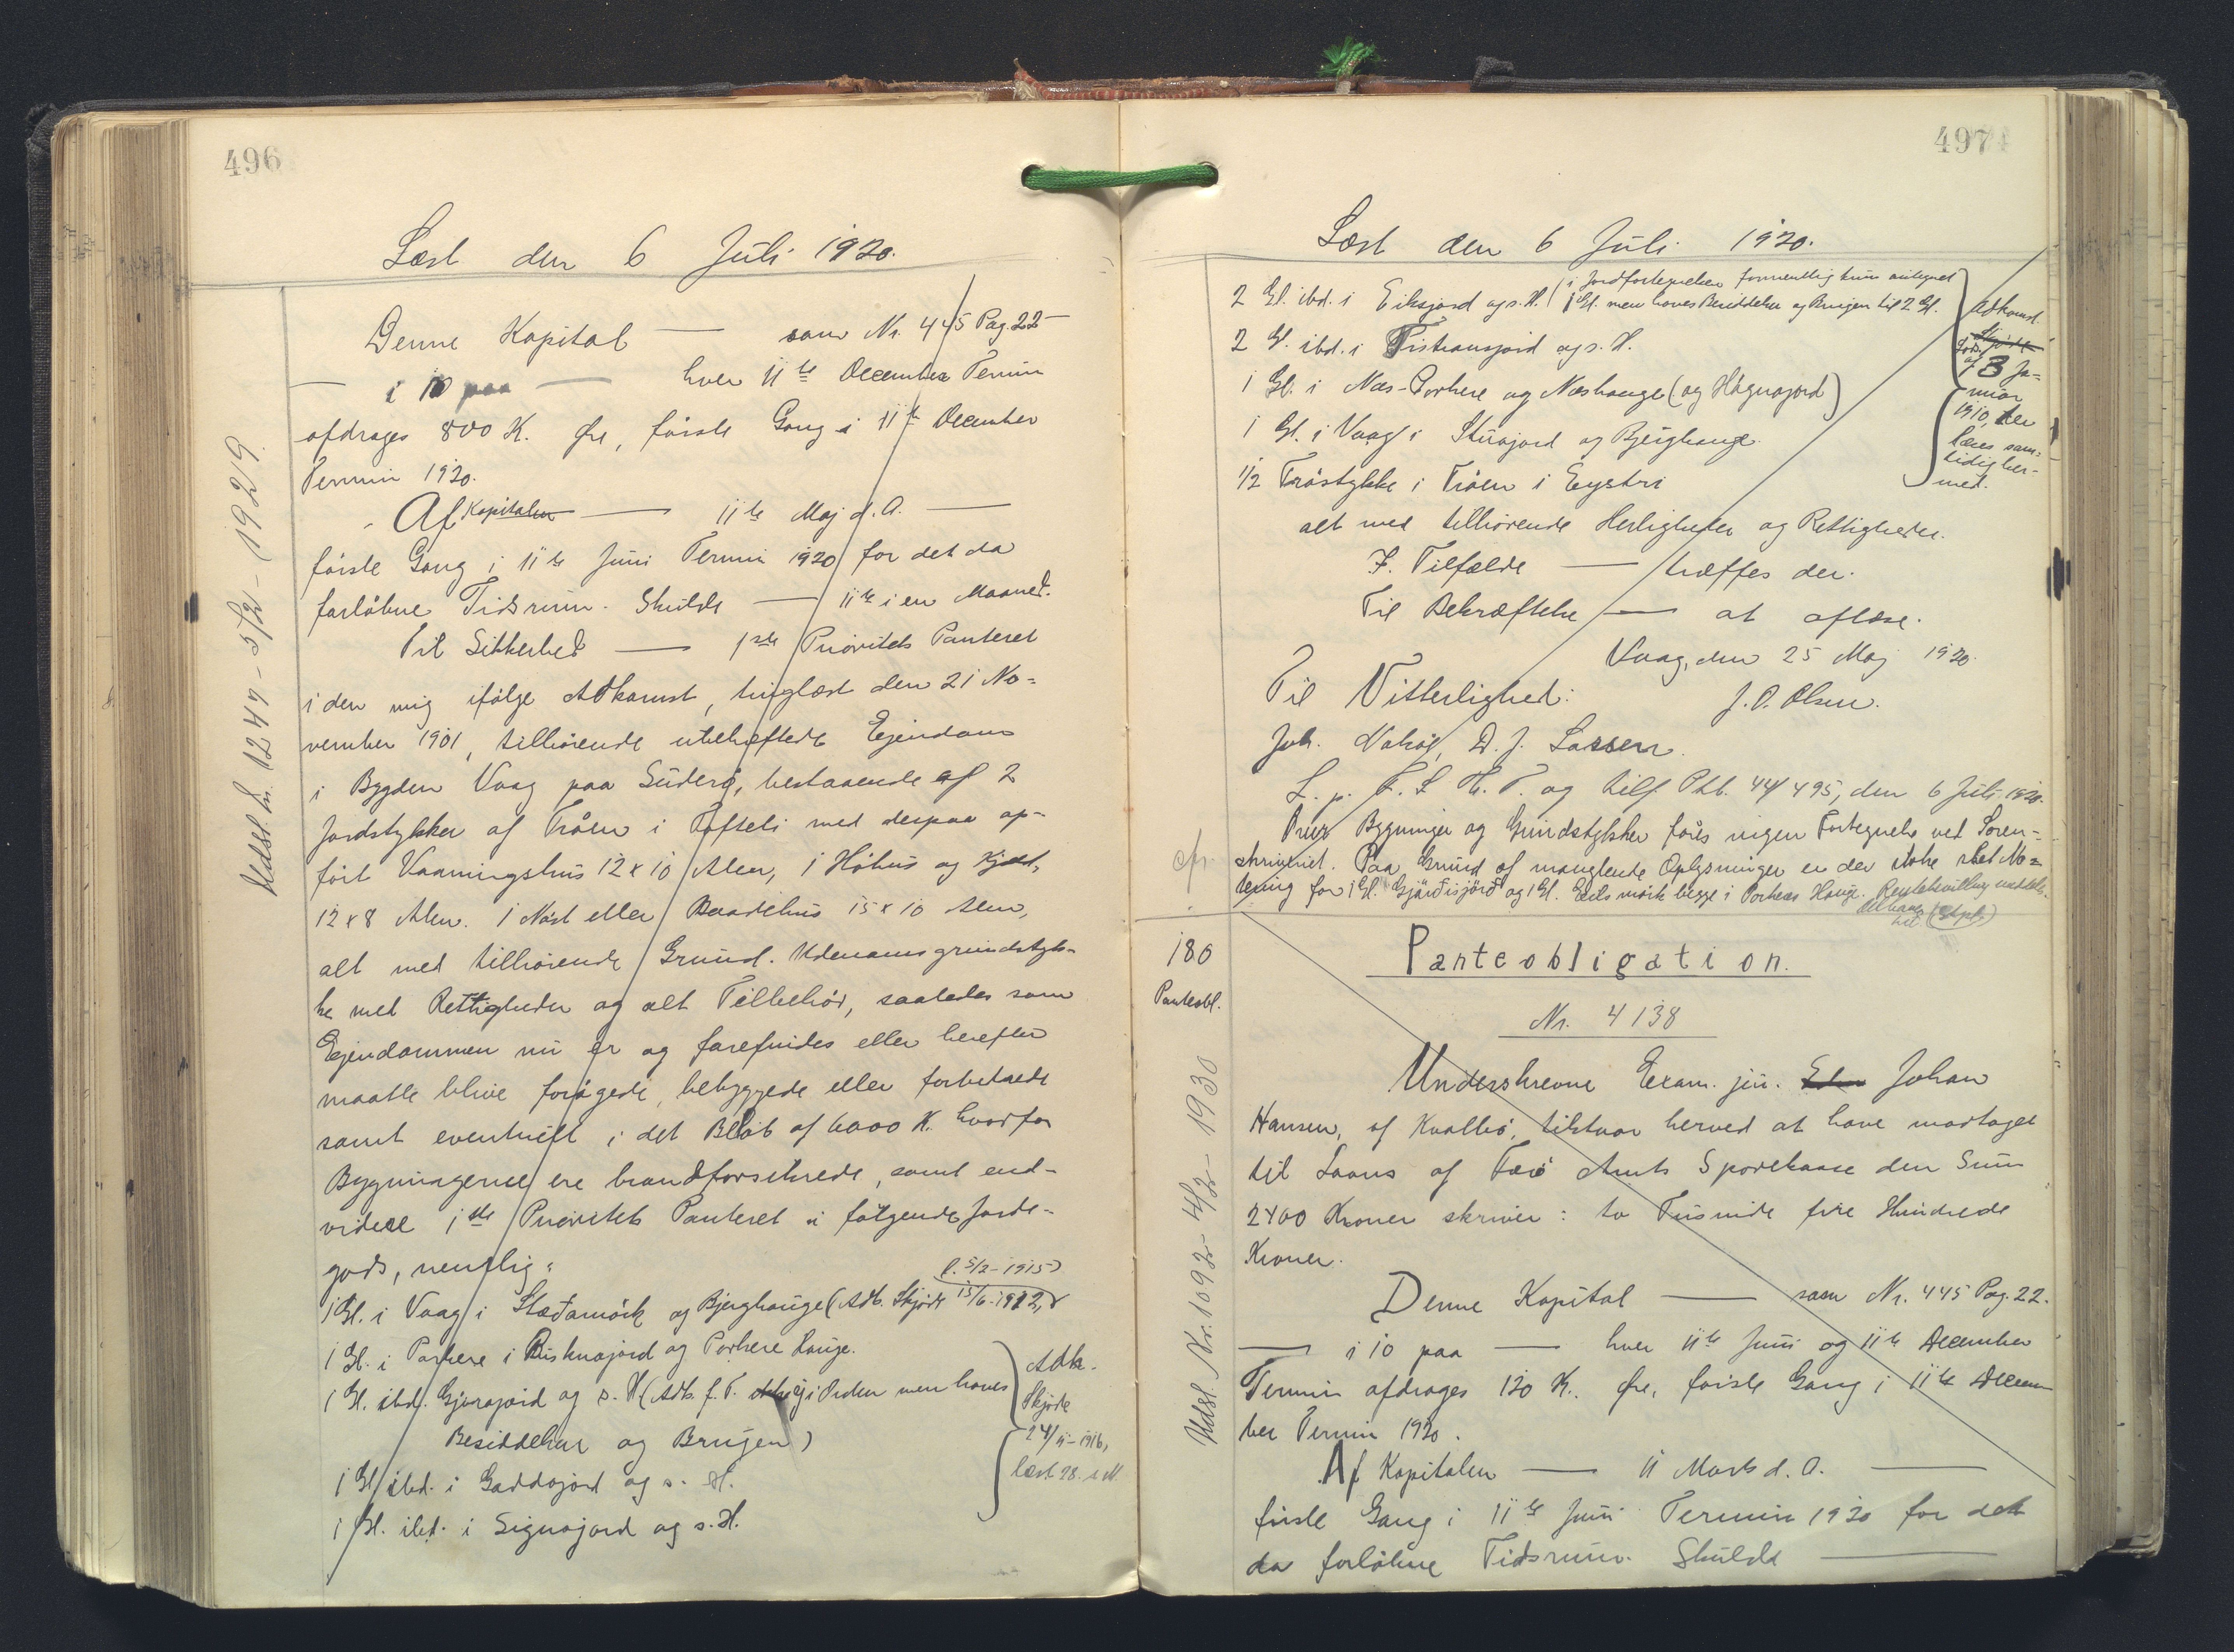 496
Læst den 6 Juli 1920.
Denne Kapital — som Nr. 445 Pag. 22 —
— i 10 paa — hver 11te December Termin
afdrages 800 K. Øre, første Gang i 11te December
Termin 1920.
Af Kapitalen — 11te Maj d. A. —
første Gang i 11te Juni Termin 1920 for det da
forløbne Tidsrum. Skulde — 11te i en Maaned.
Til Sikkerhed — 1ste Prioritets Panteret
i den mig ifølge Adkomst, tinglæst den 21 No=
vember 1901, tilhørende ubehæftede Ejendom
i Bygden Vaag paa Suderø, bestaaende af 2
Jordstykker af Trøen i Tofteli med derpaa op-
ført Vaaningshus 12 x 10 Alen, 1 Høhus og Kjæld,
12 x 8 Alen. 1 Nøst eller Baadehus 15 x 10 Alen,
alt med tilhørende Grund. Udenomsgrundstyk-
ke med Rettigheder og alt Tilbehør, saaledes som
Ejendommen nu er og forefindes eller herefter
maatte blive forøgede, bebyggede eller forbedrede
samt eventuelt i det Beløb af 6000 K. hvorfor
Bygningerne ere brandforsikrede, samt end-
videre 1ste Prioritets Panteret i følgende Jorde-
gods, nemlig:
1 Gl. i Vaag i Staðamörk og Bjerghauge (Adk. Skjøde 15/6-1912, l. 5/2-1915)
1 Gl. i Porkere i Risknajord og Porkere Hauge.
1 Gl. ibd. Gjerajord og s. H. (Adk. f. T. ikke i Orden men haves
Besiddelse og Brugen)
1 Gl. ibd. i Gaddajord og s. H.
1 Gl. ibd. i Signajord og s. H.
Adk.
Skjøde
24/11-1916,
læst 28. s. M.
Udsl. Nr. 1247 - 5/2 - 1929.
4974
Læst den 6 Juli 1920.
2 Gl. ibd. i Eiksjord og s. H. (i Jordfortegnelsen formentlig kun antegnet
1 Gl. men haves Besiddelse og Brugen til 2 Gl.
2 Gl. ibd. i Tistransjord og s. H.
1 Gl. i Næs-Porkere og Næshauge (og Høgnajord)
1 Gl. i Vaag i Sturajord og Bjerghauge.
1/2 Trøstykke i Trøen i Eystri
Adkomst
Skjøde
af 13 Ja=
nuar
1910, der
læses sam=
tidig her-
med.
alt med tilhørende Herligheder og Rettigheder.
I Tilfælde — træffes der.
Til Bekræftelse — at aflæse.
Vaag, den 25 Maj 1920.
Til Vitterlighed: J. O. Olsen.
Joh. Nolsøe, D. J. Lassen.
L. p. F. S. H. T. og tilf. Ptb. 44/495, den 6 Juli 1920.
Over Bygninger og Grundstykker føres ingen Fortegnelse ved Soren-
skriveriet. Paa Grund af manglende Oplysninger er der ikke sket No=
tering for 1 Gl. Gjørdisjörð og 1 Gl. Eidsmörk begge i Porkeres Hauge.
cfr.
180
Panteobl.
Panteobligation.
Nr. 4138
Underskrevne Exam. jur. Johan
Hansen, af Kvalbø, tilstaar herved at have modtaget
til Laans af Færø Amts Sparekasse den Sum
2400 Kroner skriver: to Tusinde fire Hundrede
Kroner.
Denne Kapital — som Nr. 445 Pag. 22.
— i 10 paa — hver 11te Juni og 11te December
Termin afdrages 120 K. Øre, første Gang i 11te Decem
ber Termin 1920.
Af Kapitalen — 11 Marts d. A. —
første Gang i 11te Juni Termin 1920 for det
da forløbne Tidsrum. Skulde —
Udsl. Nr. 1092 - 4/2 - 1930